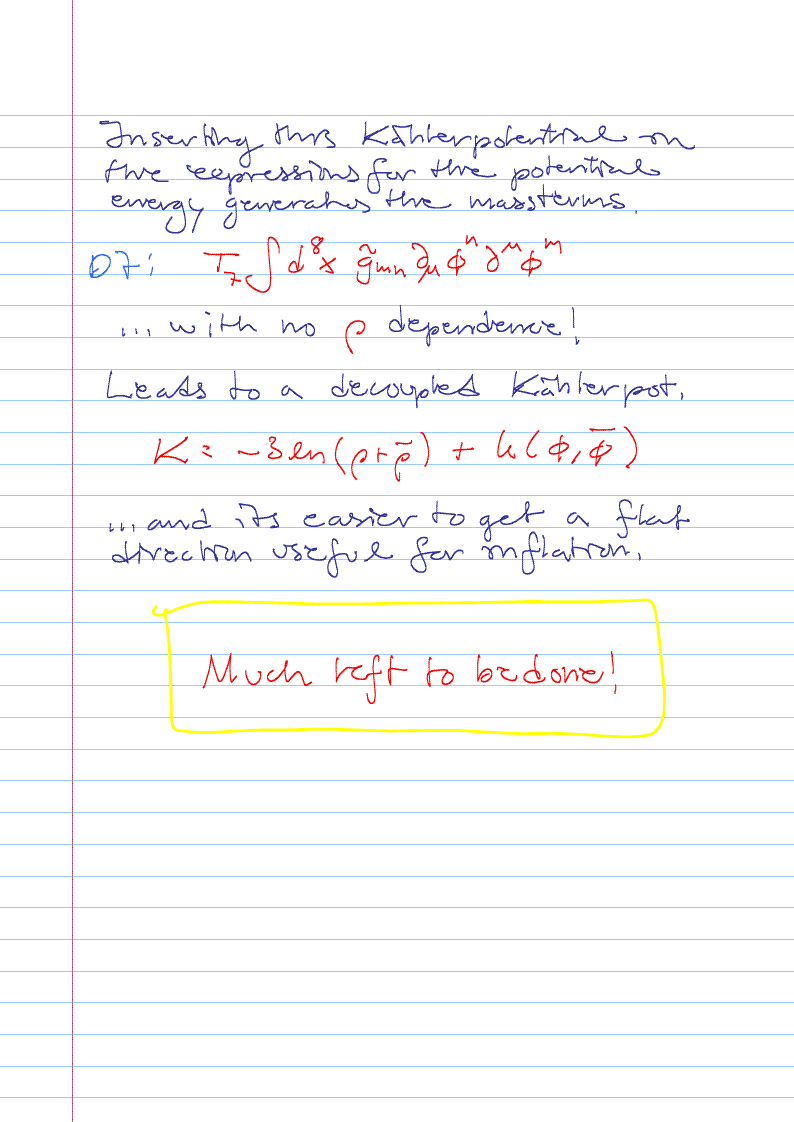 Inserting this Kählerpotential in
the expressions for the potential
energy generates the massterms.
D7: T₇∫d⁸x g̃ₘₙ ∂_μ ϕⁿ ∂^μ ϕᵐ
...with no ρ dependence!
Leads to a decoupled Kählerpot.
K = -3 ln(ρ+ρ̄) + k(ϕ,ϕ̄)
...and its easier to get a flat
direction useful for inflation.
Much left to be done!